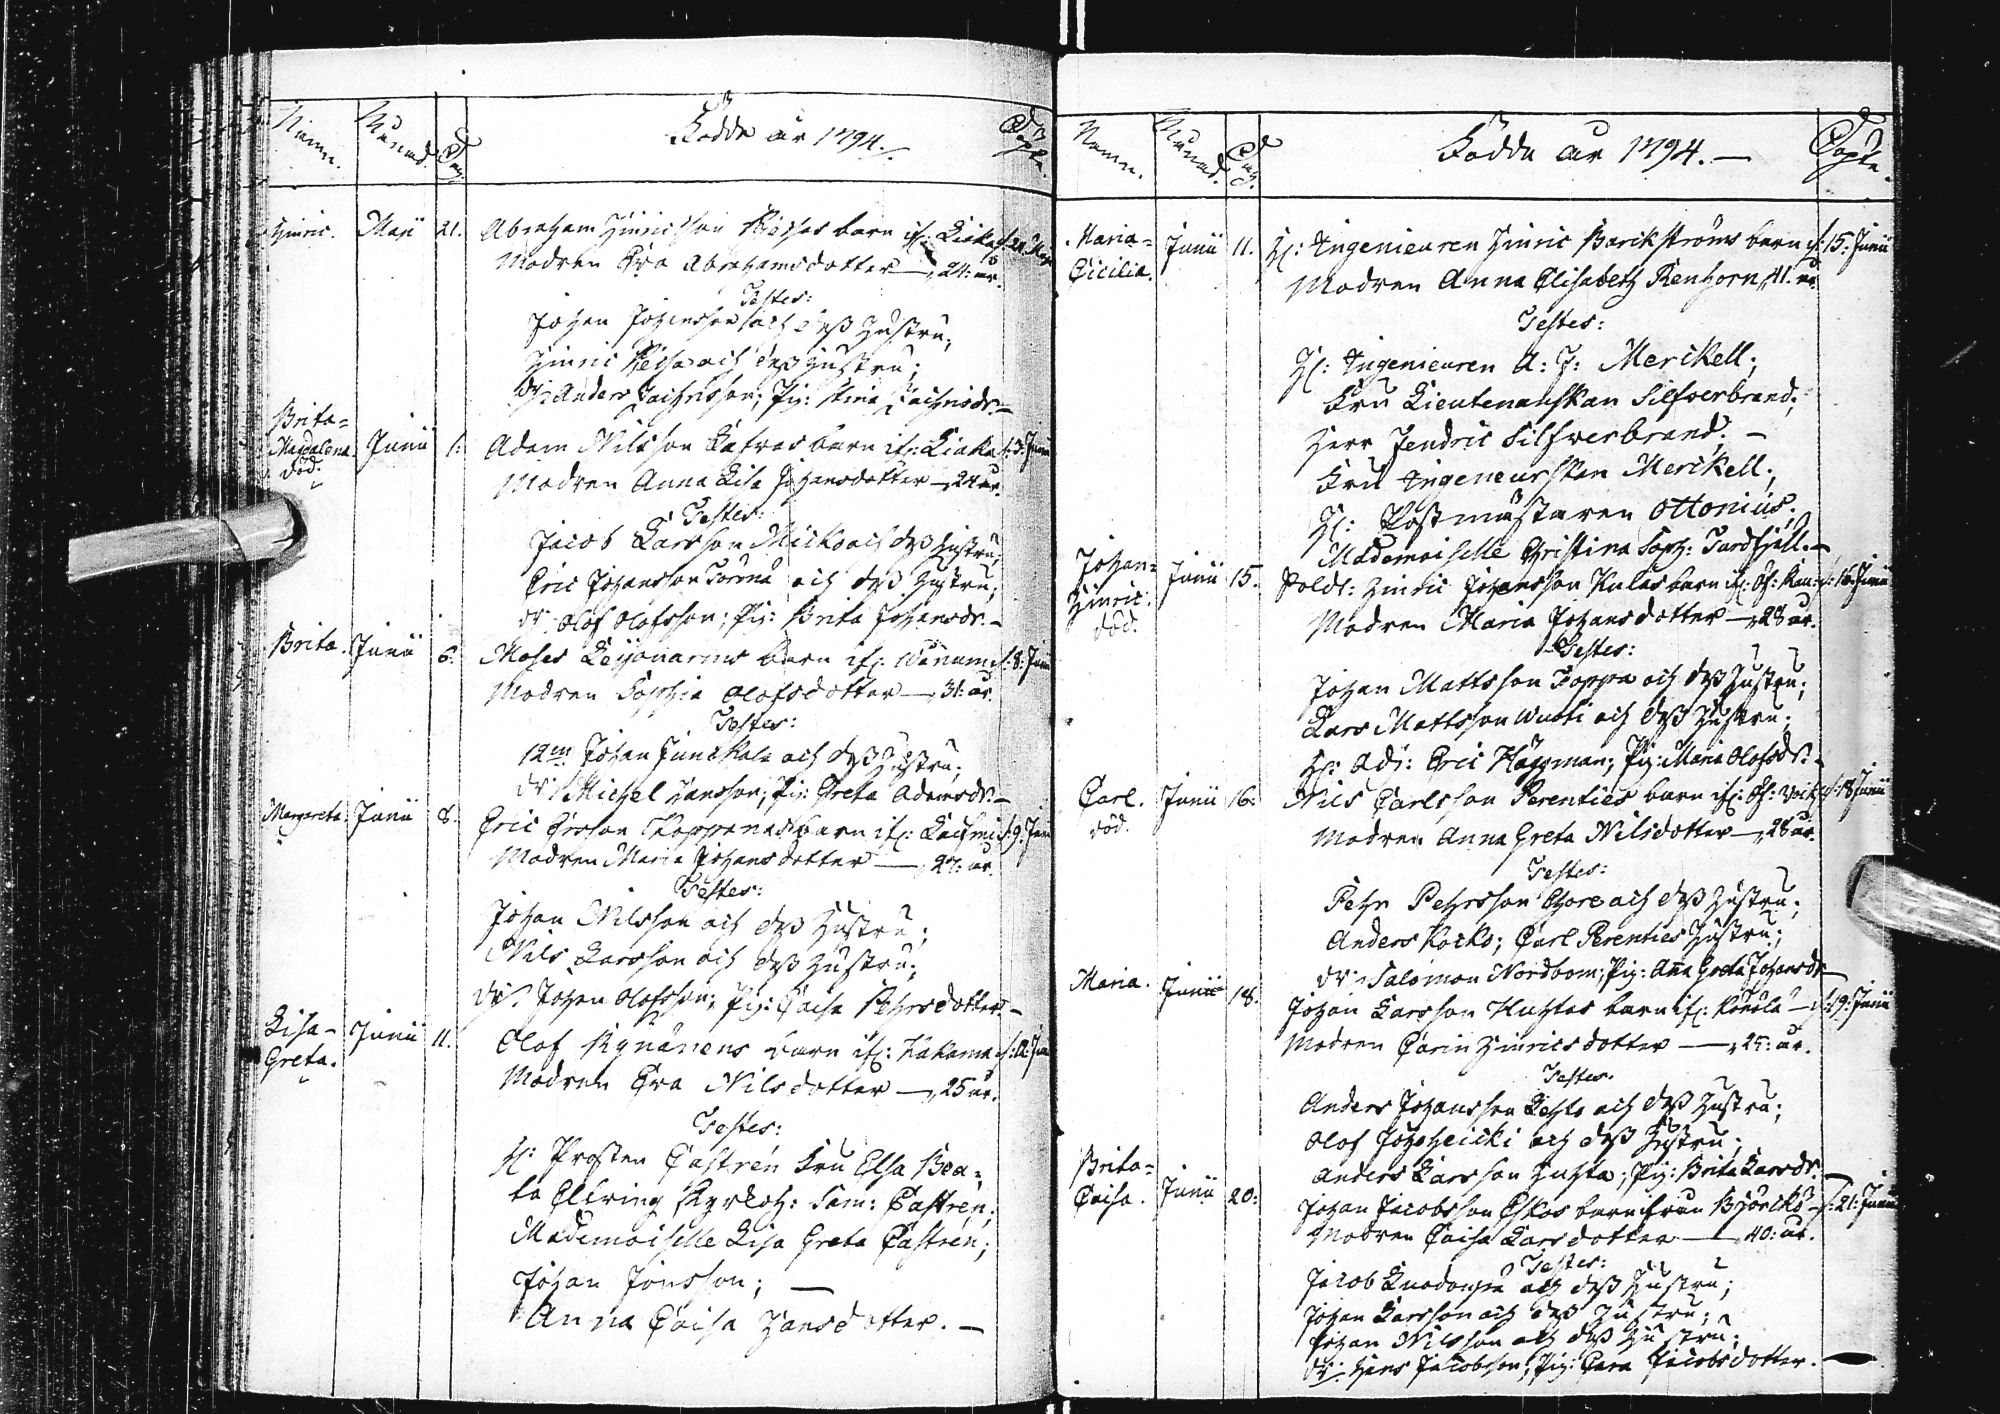 Namn. Månad. Dag. Födde år 1794. Döpte.
Hinric. Maji 21. Abraham Hinricsson barn
Modren Eva Abrahamsdotter 24: år.
Testes:
Johan Johansson och dess Hustru;
Hinric och dess Hustru;
dr: Anders Zachrisson; Pig: Stina Zachrisdr.
Brita=
Magdalena. Junii 1. Adam Nilsson barn if: Liaka d: 3: Junii
död.
Modren Anna Lisa Johansdotter 24 år.
Testes:
Jacob Larsson Micko och dess Hustru;
Eric Johansson och dess Hustru;
dr: Olof Olofsson; Pig: Brita Johansdr.
Brita. Junii 6. Moses barn if: d: 8: Junii
Modren Sophia Olofsdotter 31: år.
Testes:
Johan och dess Hustru;
dr: Michel Hansson; Pig: Greta Adamsdr.
Margareta. Junii 8. Eric Ersson barn if: d: 9: Junii
Modren Maria Johansdotter 27: år.
Testes:
Johan Nilsson och dess Hustru;
Nils Larsson och dess Hustru;
dr: Johan Olofsson; Pig: Caisa Pehrsdotter.
Lisa-
Greta. Junii 11. Olof barn if: Kakama
Modren Eva Nilsdotter 25 år.
Testes:
H: Prosten Castrén Fru Elsa Bea=
ta Elfving Kyrkoh: Sam: Castrén;
Mademoiselle Lisa Greta Castrén;
Johan Jonsson;
Anna Caisa Hansdotter.
Namn. Månad. Dag. Födde år 1794. Döpte.
Maria=
Cicilia. Junii 11. H: Ingenieuren Hinric barn d: 15: Junii
Modren Anna Elisabeth Renhorn 41. år.
Testes:
H: Ingenieuren A: J: Merikell;
Fru Lieutenanskan Silfverbrand;
Herr Fendric Silfverbrand.
Fru Ingeneurskan Merikell;
H: Postmästaren Ottonius;
Mademoiselle Christina Soph:
Johan=
Hinric. Junii 15. Soldt: Hinric Johansson barn d: 16: Junii
död.
Modren Maria Johansdotter 28 år.
Testes:
Johan Mattsson och dess Hustru;
Lars Mattsson och dess Hustru;
H: Adj: Eric Häggman; Pig: Maria Olofsdr.
Carl. Junii 16. Nils Carlsson Perenties barn d: 18 Junii
död.
Modren Anna Greta Nilsdotter 28 år.
Testes:
Pehr Pehrsson och dess Hustru;
Anders Kocko; Carl Perenties Hustru;
dr: Salomon Nordbom; Pig: Anna Greta Johansdr
Maria. Junii 18. Johan Larsson Huhtas barn if: d: 19: Junii
Modren Carin Hinricsdotter 25: år.
Testes.
Anders Johansson och dess Hustru;
Olof och dess Hustru;
Anders Larsson Huhta; Pig: Brita Larsdr.
Brita=
Caisa. Junii 20. Johan Jacobsson barn från Björckö d: 21: Junii
Modren Caisa Larsdotter 40: år.
Testes:
Jacob och dess Hustru;
Johan Larsson och dess Hustru;
Johan Nilsson och dess Hustru;
dr: Hans Jacobsson; Pig: Jacobsdotter.